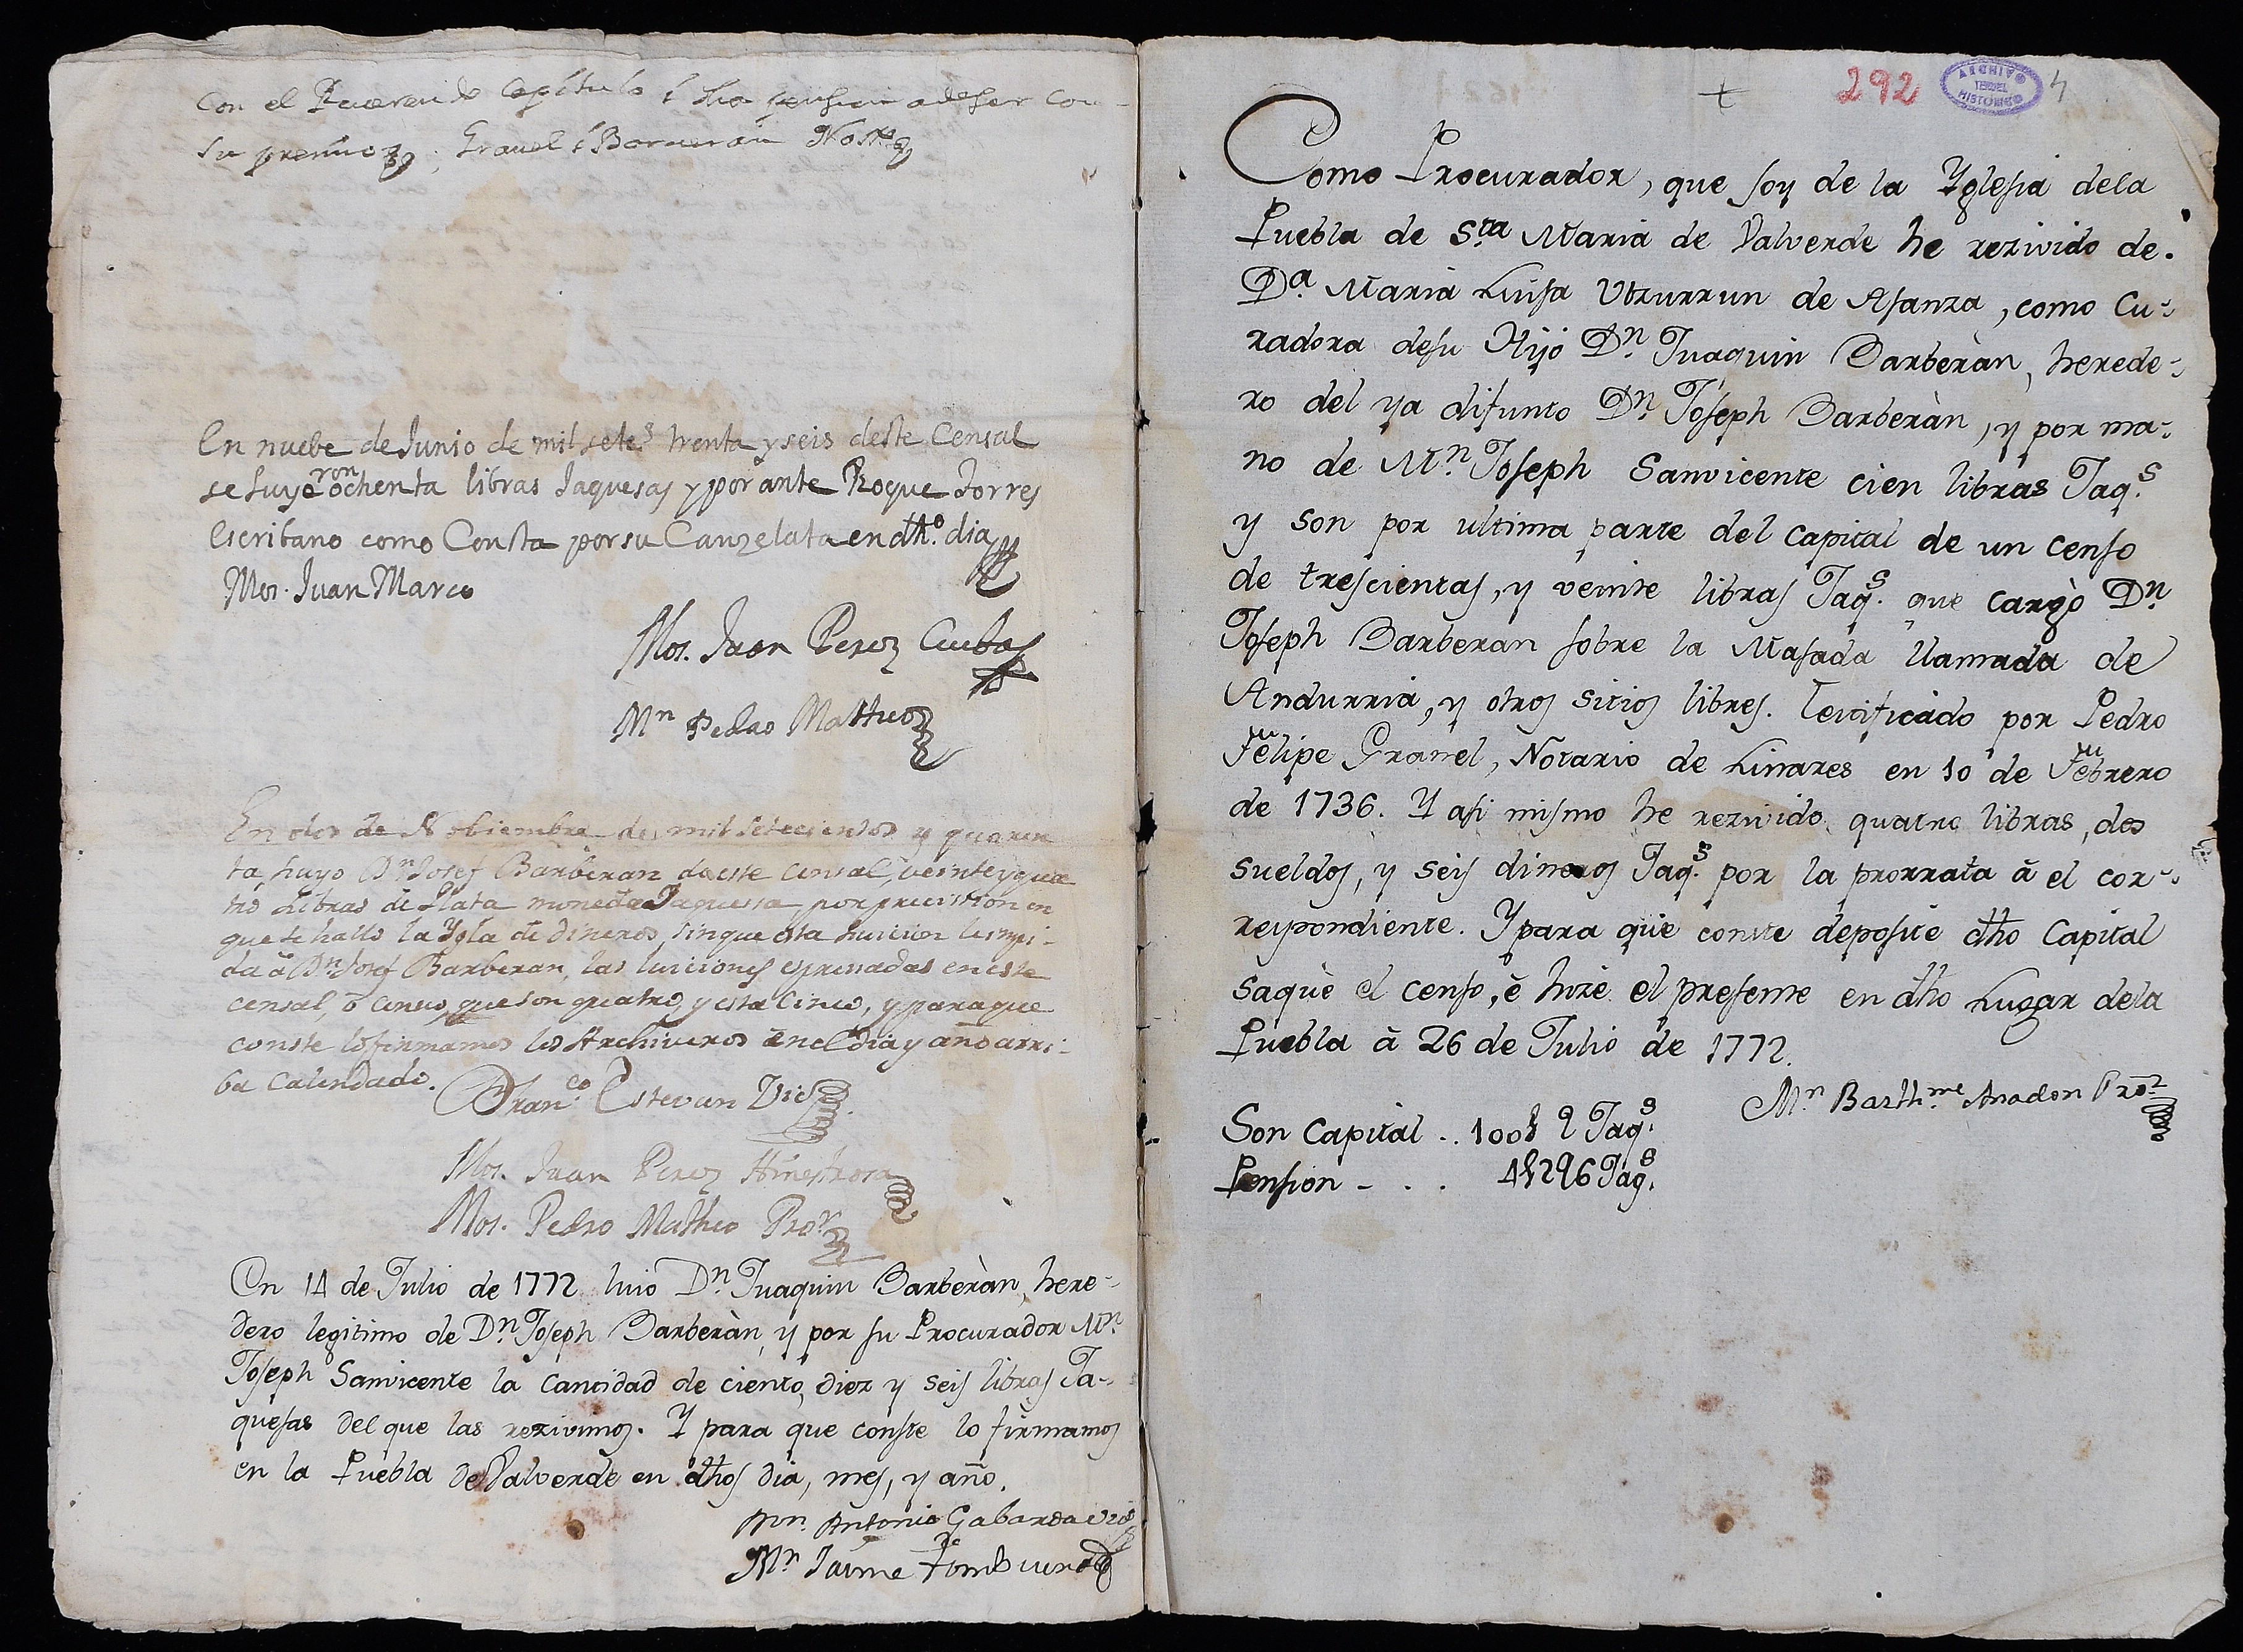 Con el Reverendo Capitulo
Su premio
En nuebe de Junio de mil setes. trenta y seis deste Censal
se luyoron ochenta libras Jaquesas y por ante Roque Torres
escribano como Consta por su Canzelata en dho. dia
Mos. Juan Marco
Mos. Juan Perez Cubas
Mn Pedro Matheo
En dos de Nobiembre de mil setecientos y quaren
ta luyo Dn Josef Barberan de este censal, veinte y qua
tro Libras de Plata moneda Jaquesa, por precission en
que se hallò la Ygla de dineros, sin que esta luicion le impi-
da â Dn Josef Barberan, las luiciones espresadas en este
censal, ô censo, que son quatro, y esta Cinco, y para que
conste lo firmamos los Archiveros en el dia y año arri-
ba Calendado.
Franco. Estevan Vic
Mos. Juan Perez Hinestrosa
Mos. Pedro Matheo Pror
En 14 de Julio de 1772 luio Dn Juaquin Barberàn, here-
dero legitimo de Dn Joseph Barberàn, y por su Procurador Mn
Joseph Sanvicente la Cantidad de ciento, diez y seis libras Ja-
quesas del que las rezivimos. Y para que conste lo firmamos
en la Puebla de Valverde en dhos dia, mes, y año.
mn. Antonio Gabarda
Mn Jaime
+
292
ARCHIVO
TERUEL
HISTORICO
4
Como Procurador, que soy de la Yglesia dela
Puebla de Sta Maria de Valverde he rezivido de
Da. Maria Luisa Utzurrun de Asanza, como Cu-
radora desu Hijo Dn. Juaquin Barberàn, herede-
ro del ya difunto Dn. Joseph Barberàn, y por ma-
no de Mn. Joseph Sanvicente cien libras Jaqs.
y son por ultima parte del capital de un censo
de trescientas, y veinte libras Jaqs. que cargò Dn.
Joseph Barberan sobre la Masada llamada de
Andurria, y otros sitios libres. Testificado por Pedro
Felipe Granel, Notario de Linares en 10 de Febrero
de 1736. Y asi mismo he rezivido quatro libras, dos
sueldos, y seis dineros Jaqs. por la prorrata â el cor-
respondiente. Y para que conste deposite dho Capital
saquè el censo, è hize el presente en dho Lugar dela
Puebla à 26 de Julio de 1772.
Mn Barthme Anadon Pror
Son Capital .. 100 Jaqs.
Pension - . . 4 2 6 Jaqs.